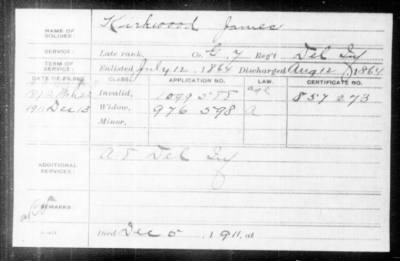 NAME OF SOLDIER: Kirkwood James
SERVICE: Late rank, Co. G, 7 Reg't Del Inf
TERM OF SERVICE: Enlisted July 12, 1864 Discharged Aug 12, 1864
DATE OF FILING. CLASS. APPLICATION NO. LAW. CERTIFICATE NO.
Invalid, 857 273
1911 Dec 13 Widow, 976 598 a
Minor,
ADDITIONAL SERVICES: Del Inf
REMARKS:
Died Dec 5, 1911, at